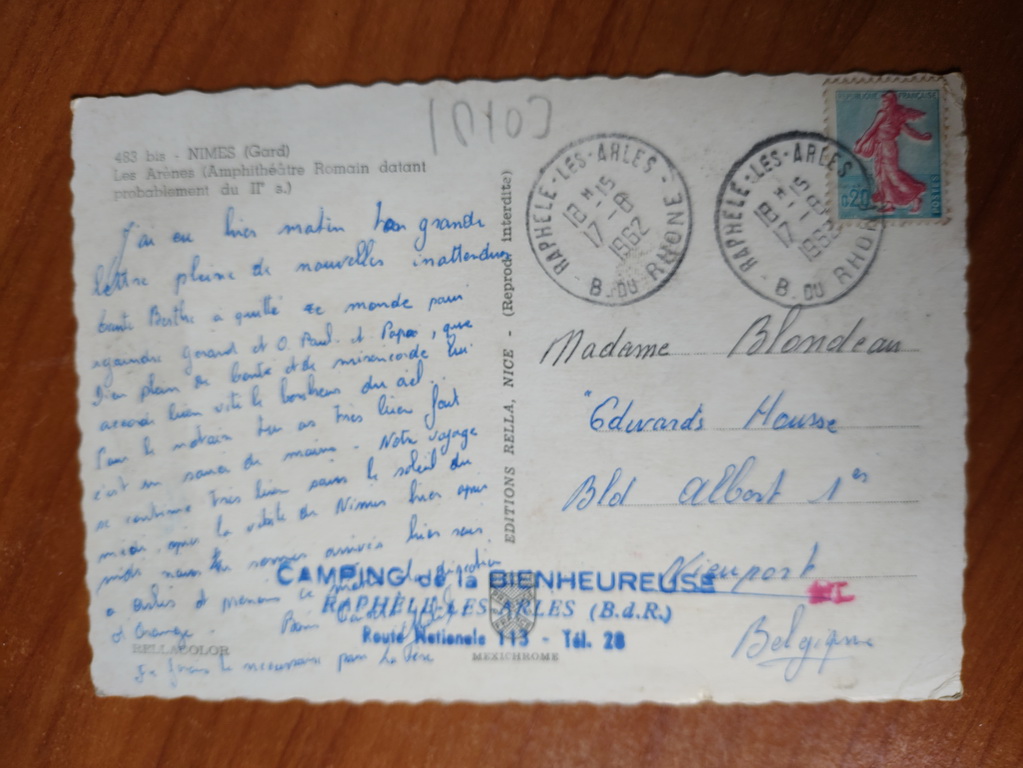 483 bis - NIMES (Gard)
Les Arènes (Amphithéâtre Romain datant
probablement du IIe s.)
J'ai eu hier matin ton grande
lettre pleine de nouvelles inattendues
tante Berthe a quitté ce monde pour
rejoindre Gérard et O. Paul et Papa, que
Dieu plein de bonté et de miséricorde lui
accorde bien vite le bonheur du ciel.
Pour le notaire tu as très bien fait
c'est un souci de moins. Notre voyage
se continue très bien sous le soleil du
midi, après la visite de Nîmes hier après
midi nous sommes arrivés hier soir
a Arles et prenons ce matin la direction
d'Orange.
Je frais le nécessaire pour Le Père
RELLACOLOR
EDITIONS RELLA, NICE - (Reprod. interdite)
MEXICHROME
CAMPING de la BIENHEUREUSE
RAPHÈLE-LES-ARLES (B.d.R.)
Route Nationale 113 - Tél. 28
RAPHELE-LES-ARLES - B. DU RHONE
18 H 15
17 - 8
1962
RAPHELE-LES-ARLES - B. DU RHONE
18 H 15
17 - 8
1962
REPUBLIQUE FRANÇAISE
0,20
POSTES
Madame Blondeau
"Edward's House
Bld Albert 1er
Nieuport
Belgique